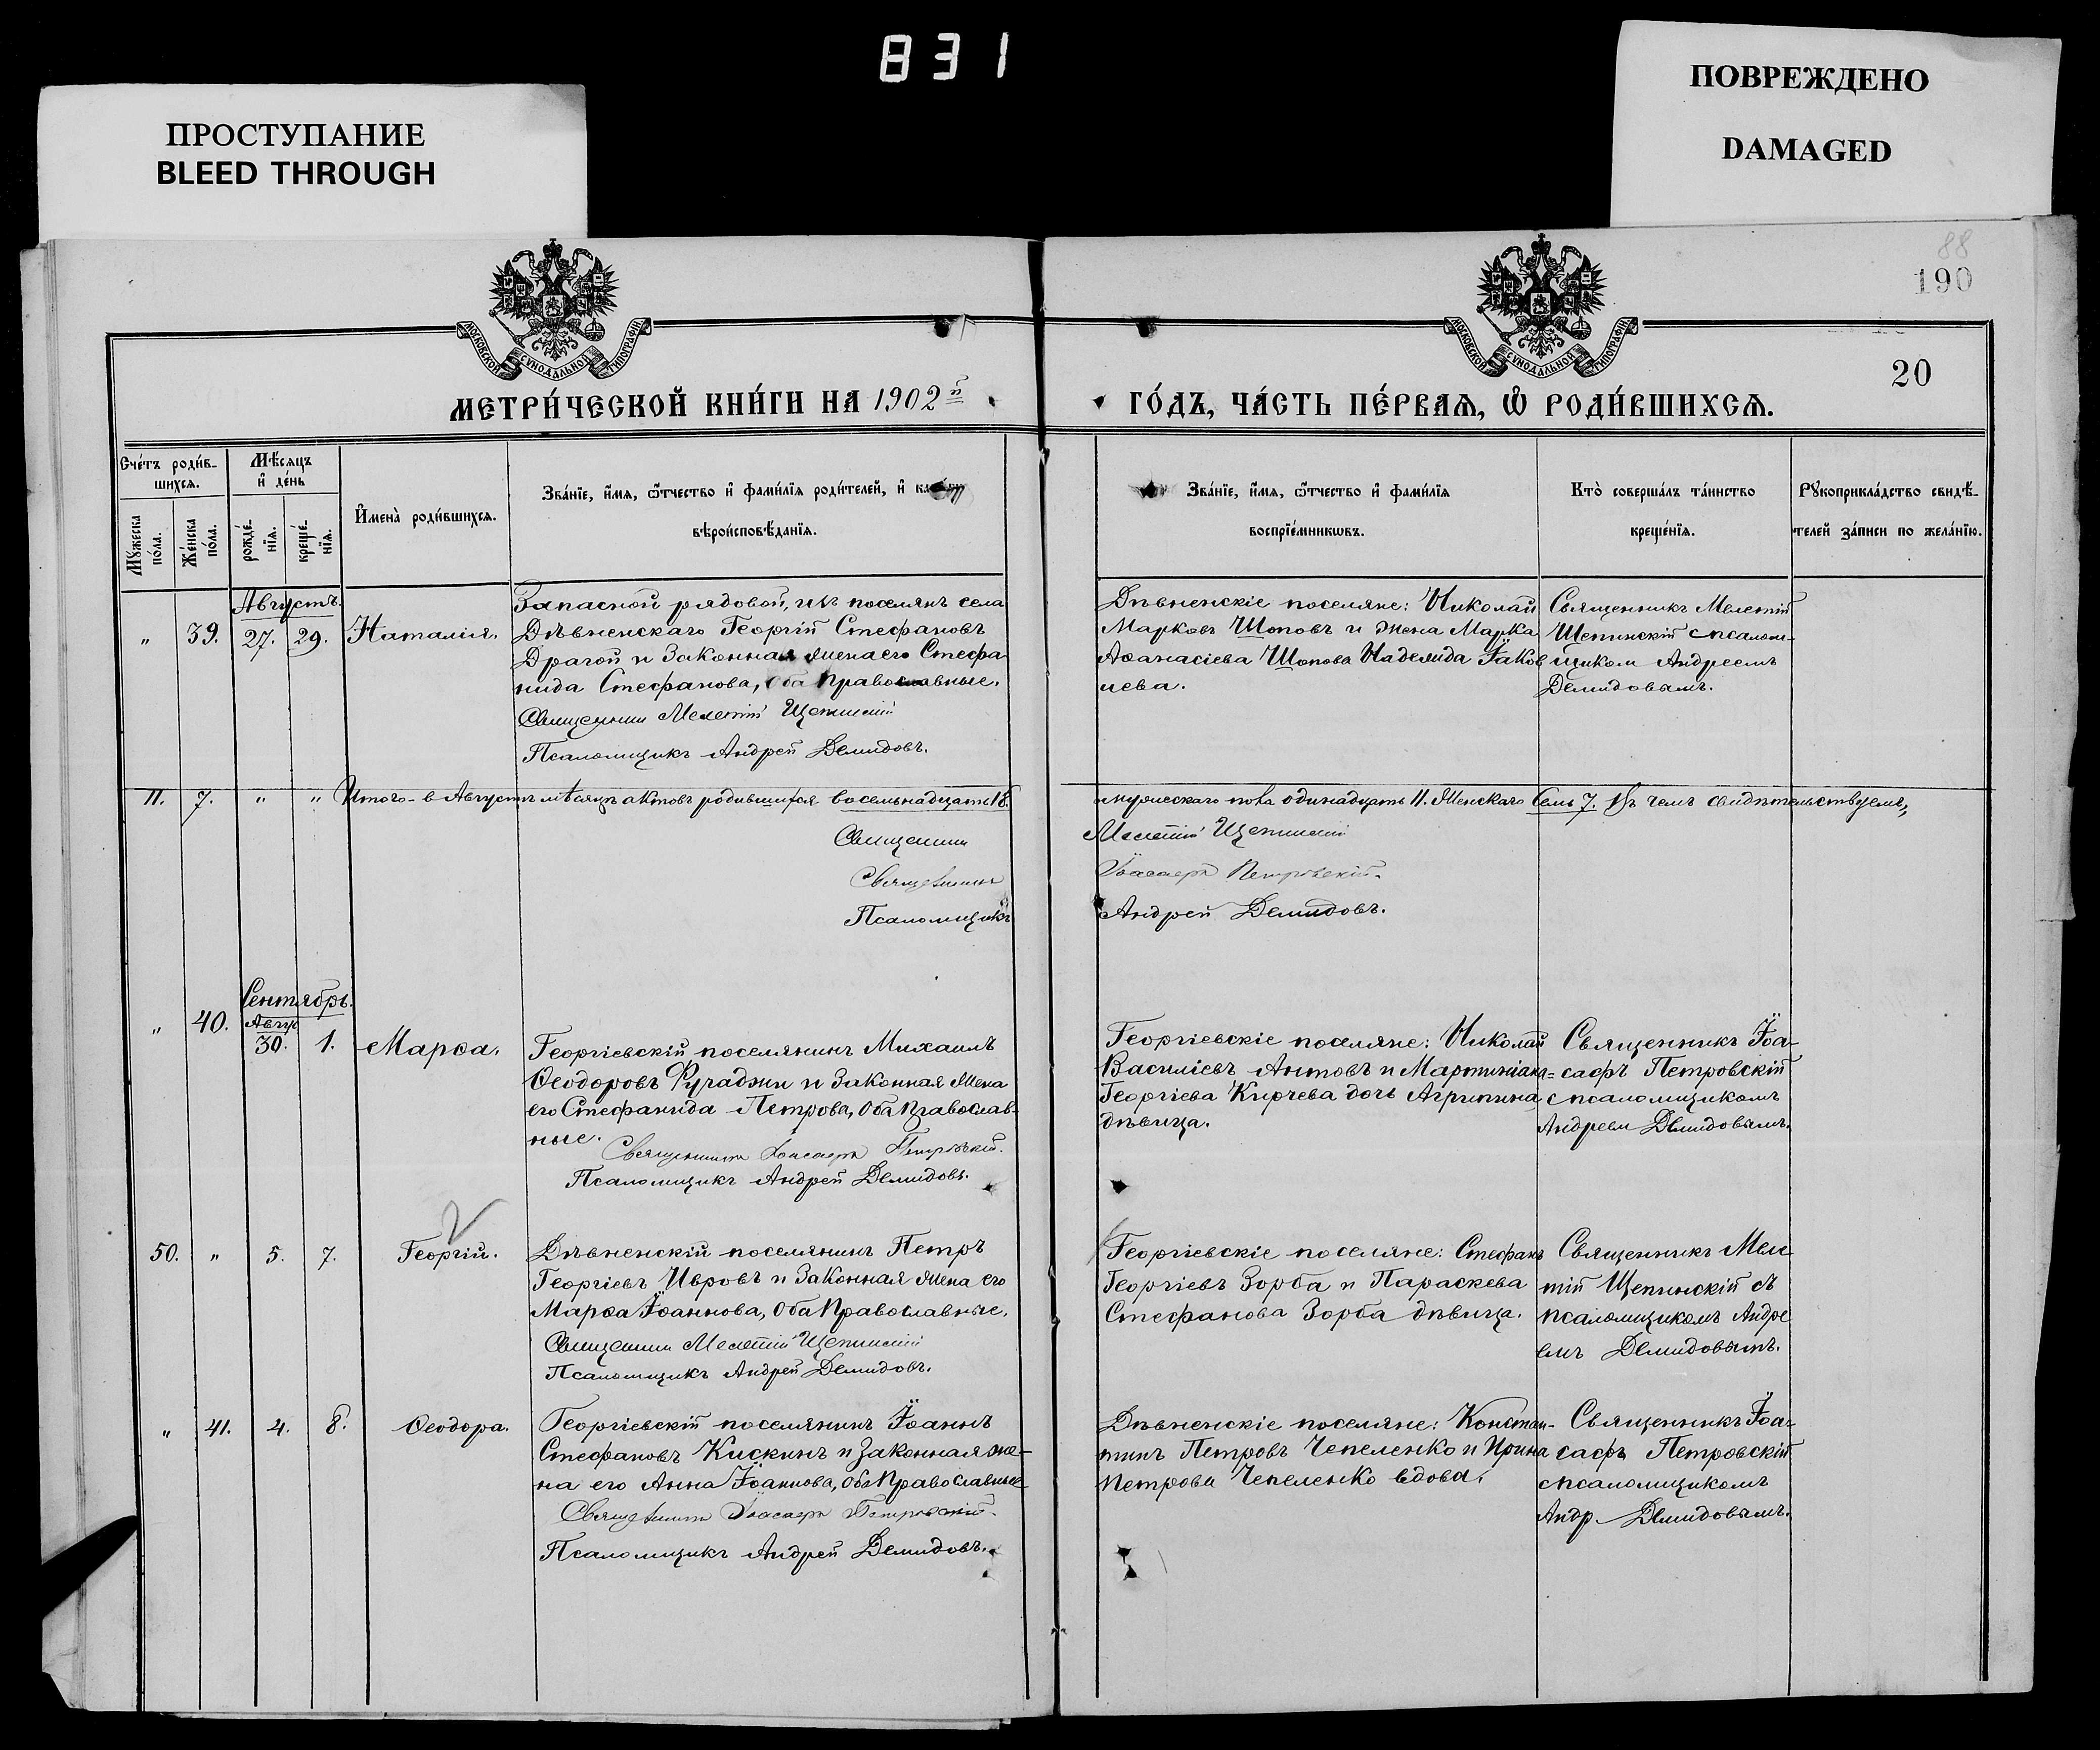 831
ПРОСТУПАНИЕ
BLEED THROUGH
ПОВРЕЖДЕНО
DAMAGED
88
190
20
МОСКОВСКОЙ СѴНОДАЛЬНОЙ ТИПОГРАФІИ
МОСКОВСКОЙ СѴНОДАЛЬНОЙ ТИПОГРАФІИ
МЕТРИ́ЧЕСКОЙ КНИ́ГИ НА 1902й
ГО́ДЪ, ЧА́СТЬ ПЕ́РВАѦ, Ѡ҆ РОДИ́ВШИХСѦ.
Сче́тъ роди́в-
шихсѧ.
Мѹ́жеска
по́ла.
Же́нска
по́ла.
Мѣ́сѧцъ
и҆ де́нь
рожде́-
нїѧ.
креще́-
нїѧ.
И҆мена̀ роди́вшихсѧ.
Зва́нїе, и҆́мѧ, ѻ҆́тчество и҆ фами́лїѧ роди́телей, и҆
вѣроисповѣ́данїѧ.
Зва́нїе, и҆́мѧ, ѻ҆́тчество и҆ фами́лїѧ
воспрїе́мникѡвъ.
Кто̀ соверша́лъ та́инство
креще́нїѧ.
Рꙋкоприкла́дство свидѣ́-
телей за́писи по жела́нїю.
Августъ.
„ 39. 27. 29. Наталія.
Запасной рядовой, изъ поселянъ села
Дѣвненскаго Георгій Стефановъ
Драгой и законная жена его Стефа
нида Стефанова, оба православные.
Священникъ Мелетій Щепинскій
Псаломщикъ Андрей Демидовъ.
Дѣвненскіе поселяне: Николай
Марковъ Шоповъ и жена Марка
Аѳанасіева Шопова Надежда Іаков
лева.
Священникъ Мелетій
Щепинскій с псалом-
щиком Андреемъ
Демидовымъ.
11. 7. „ „ Итого - в Августѣ мѣсяцѣ актовъ родившихся восемьнадцать 18.
мужескаго пола одинадцать 11. Женскаго Семь 7. Въ чемъ свидѣтельствуемъ,
Священникъ
Мелетій Щепинскій
Священникъ
Іоасафъ Петровскій.
Псаломщикъ
Андрей Демидовъ.
Сентябрь.
„ 40. Авгу 30. 1. Марѳа.
Георгіевскій поселянинъ Михаилъ
Ѳеодоровъ Ругаджи и законная жена
его Стефанида Петрова, оба православ-
ные.
Священникъ Іоасафъ Петровскій.
Псаломщикъ Андрей Демидовъ.
Георгіевскіе поселяне: Николай
Василіевъ Антовъ и Мартиніана=
Георгіева Кирчева дочь Агрипина
дѣвица.
Священникъ Іоа-
сафъ Петровскій
с псаломщикомъ
Андреем Демидовымъ.
50. „ 5. 7. Георгій.
Дѣвненскій поселянинъ Петръ
Георгіевъ Ивровъ и законная жена его
Марѳа Іоаннова, оба православные.
Священникъ Мелетій Щепинскій
Псаломщикъ Андрей Демидовъ.
Георгіевскіе поселяне: Стефанъ
Георгіевъ Зорба и Параскева
Стефанова Зорба дѣвица.
Священникъ Меле
тій Щепинскій съ
псаломщикомъ Андре
емъ Демидовымъ.
„ 41. 4. 8. Ѳеодора.
Георгіевскій поселянинъ Іоаннъ
Стефановъ Кискинъ и законная же-
на его Анна Іоаннова, оба православные
Священникъ Іоасафъ Петровскій.
Псаломщикъ Андрей Демидовъ.
Дѣвненскіе поселяне: Констан-
тинъ Петровъ Чепеленко и Ирина
Петрова Чепеленко вдова.
Священникъ Іоа-
сафъ Петровскій
с псаломщикомъ
Андр. Демидовымъ.